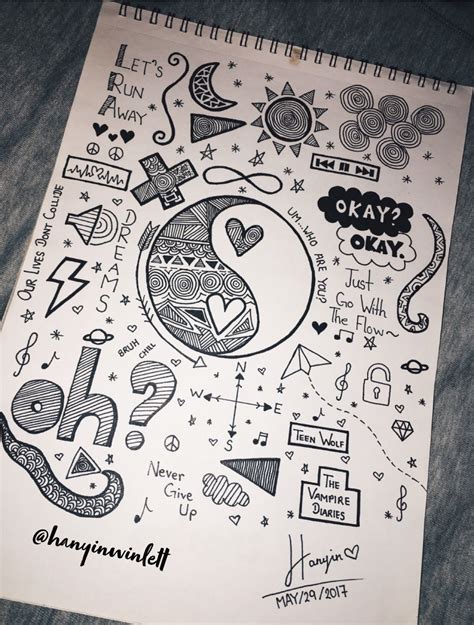 LET'S
RUN
AWAY
OUR LIVES DON'T COLLIDE
DREAMS
UM...WHO ARE YOU?
OKAY?
OKAY.
JUST
GO WITH
THE FLOW~
BRUH
CHILL
oh?
N
W E
S
TEEN WOLF
NEVER
GIVE
UP
THE
VAMPIRE
DIARIES
@hanyinwinlett
Hanyin
MAY/29/2017